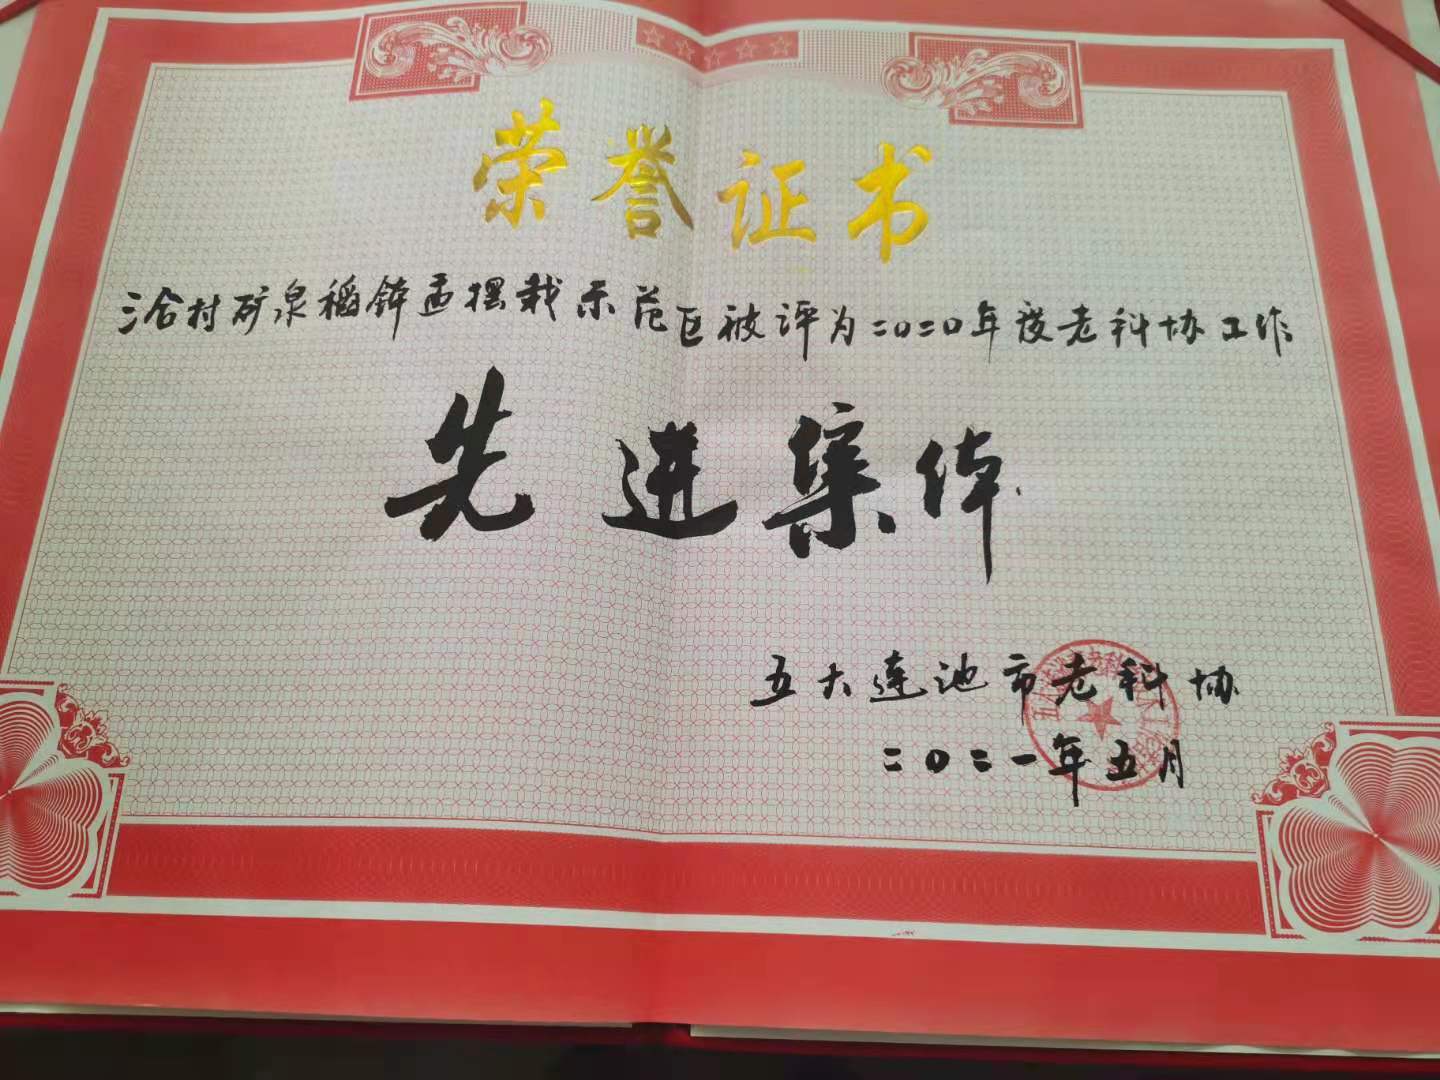 荣誉证书
三合村矿泉稻钵盂摆栽示范区被评为二〇二〇年度老科协工作
先进集体
五大连池市老科协
二〇二一年五月